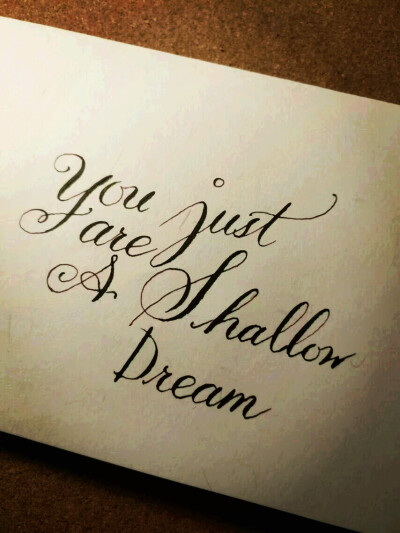 You just
are
A Shallow
Dream